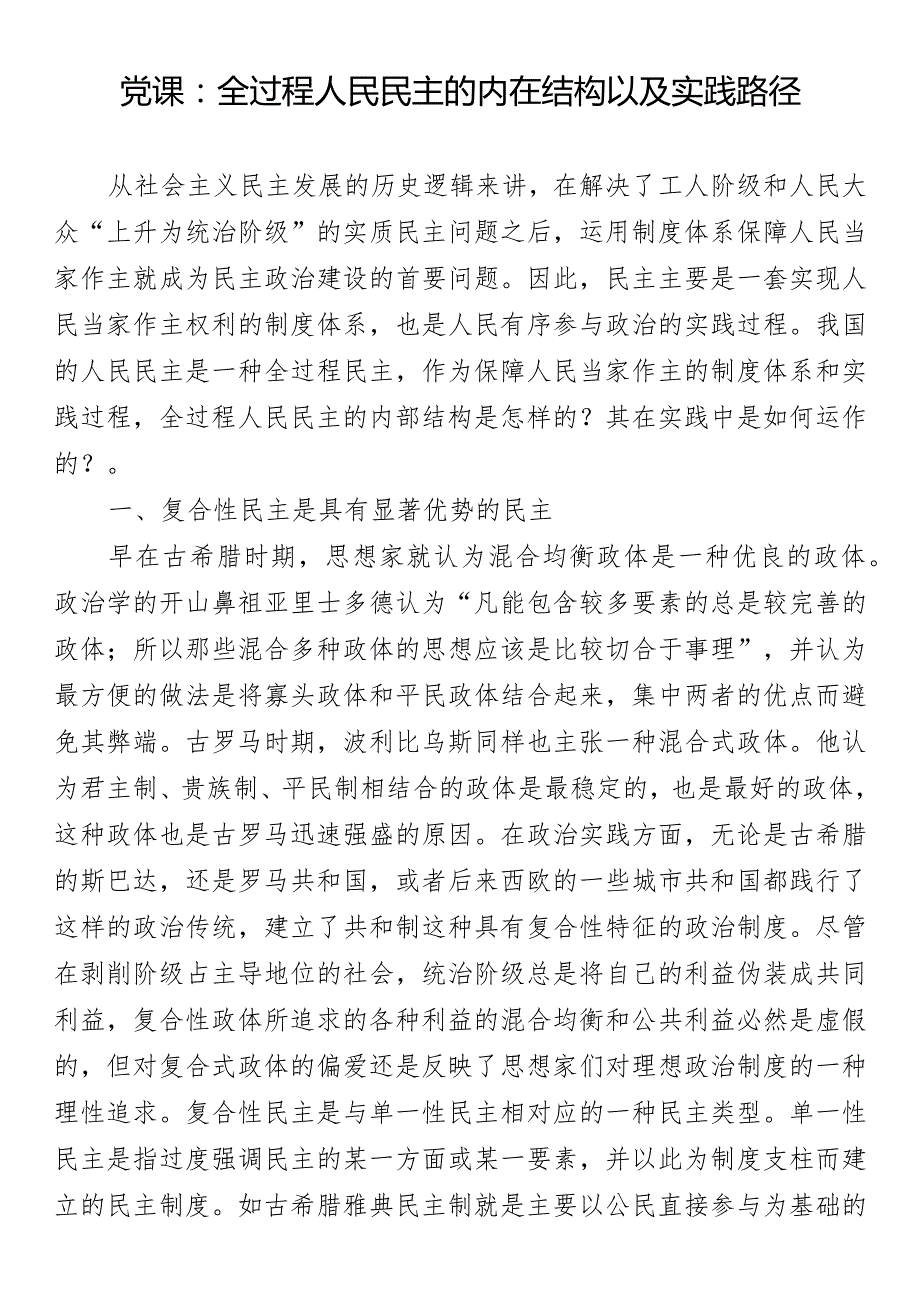 党课：全过程人民民主的内在结构以及实践路径
从社会主义民主发展的历史逻辑来讲，在解决了工人阶级和人民大
众“上升为统治阶级”的实质民主问题之后，运用制度体系保障人民当
家作主就成为民主政治建设的首要问题。因此，民主主要是一套实现人
民当家作主权利的制度体系，也是人民有序参与政治的实践过程。我国
的人民民主是一种全过程民主，作为保障人民当家作主的制度体系和实
践过程，全过程人民民主的内部结构是怎样的？其在实践中是如何运作
的？。
一、复合性民主是具有显著优势的民主
早在古希腊时期，思想家就认为混合均衡政体是一种优良的政体。
政治学的开山鼻祖亚里士多德认为“凡能包含较多要素的总是较完善的
政体；所以那些混合多种政体的思想应该是比较切合于事理”，并认为
最方便的做法是将寡头政体和平民政体结合起来，集中两者的优点而避
免其弊端。古罗马时期，波利比乌斯同样也主张一种混合式政体。他认
为君主制、贵族制、平民制相结合的政体是最稳定的，也是最好的政体，
这种政体也是古罗马迅速强盛的原因。在政治实践方面，无论是古希腊
的斯巴达，还是罗马共和国，或者后来西欧的一些城市共和国都践行了
这样的政治传统，建立了共和制这种具有复合性特征的政治制度。尽管
在剥削阶级占主导地位的社会，统治阶级总是将自己的利益伪装成共同
利益，复合性政体所追求的各种利益的混合均衡和公共利益必然是虚假
的，但对复合式政体的偏爱还是反映了思想家们对理想政治制度的一种
理性追求。复合性民主是与单一性民主相对应的一种民主类型。单一性
民主是指过度强调民主的某一方面或某一要素，并以此为制度支柱而建
立的民主制度。如古希腊雅典民主制就是主要以公民直接参与为基础的